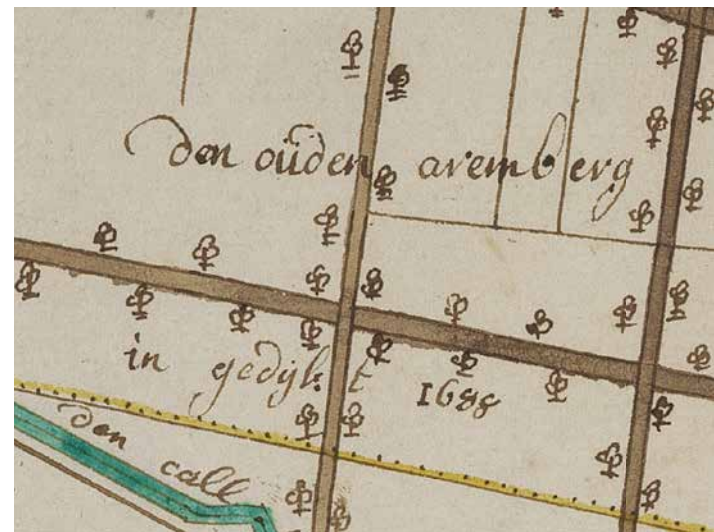 den oüden aremberg
in gedijkt 1688
den call